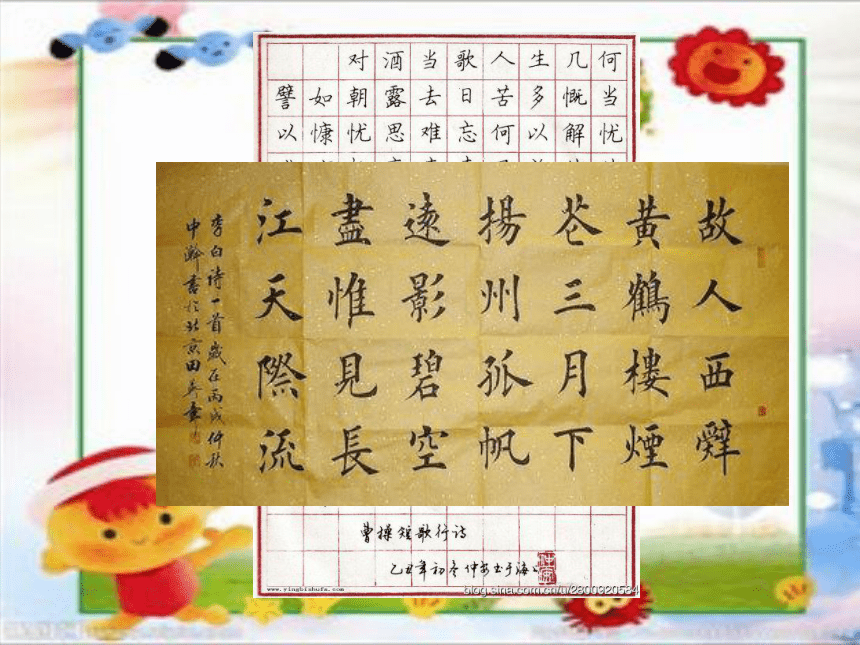 对酒当歌人生几何
譬如朝露去日苦多慨当
以慷忧思难忘何以解忧
故人西辭
黄鶴樓煙
花三月下
揚州孤帆
遠影碧空
盡惟見長
江天際流
李白诗一首歲在丙戌仲秋
中瀚書於北京田英章
曹操短歌行诗
乙丑年初冬仲安书于海上
www.yingbishufa.com
blog.sina.com.cn/u/2800920584